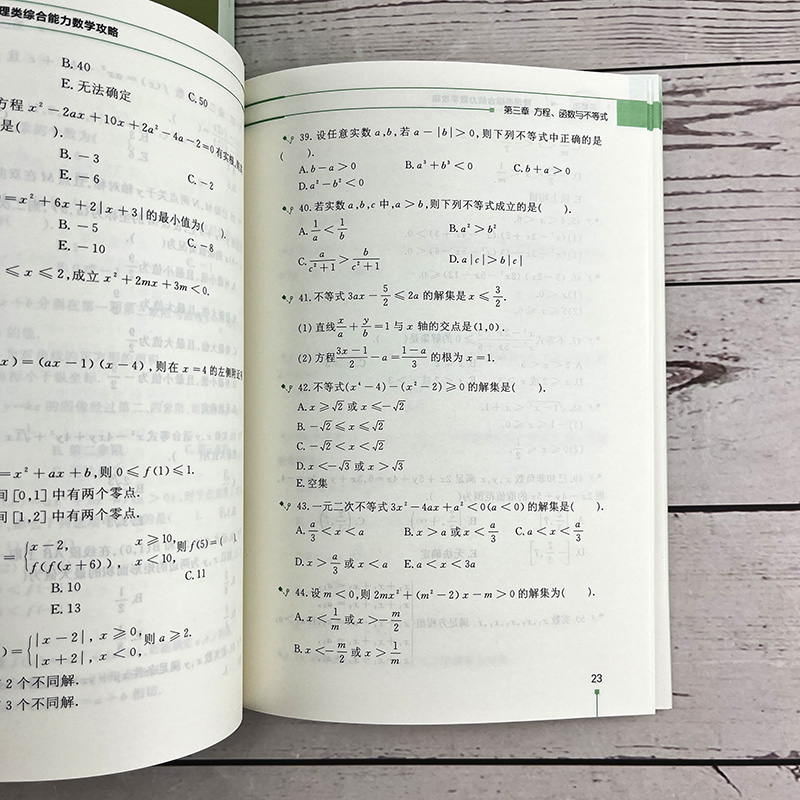 理类综合能力数学攻略
B. 40
E. 无法确定
C. 50
方程 x²－2ax＋10x＋2a²－4a－2＝0 有实根
是(　).
B. －3
E. －6
C. －2
＝x²＋6x＋2|x＋3| 的最小值为(　).
B. －5
E. －10
C. －8
≤x≤2,成立 x²＋2mx＋3m＜0.
x)＝(ax－1)(x－4),则在 x＝4 的左侧附近
＝x²＋ax＋b,则 0≤f(1)≤1.
间[0,1]中有两个零点.
间[1,2]中有两个零点.
＝{x－2, x≥10,
f(f(x＋6)), x＜10, 则 f(5)＝(
B. 10
C. 11
E. 13
)＝{|x－2|, x≥0,
|x＋2|, x＜0, 则 a≥2.
2 个不同解.
3 个不同解.
第三章 方程、函数与不等式
39. 设任意实数 a,b,若 a－|b|＞0,则下列不等式中正确的是
(　).
A. b－a＞0 B. a³＋b³＜0 C. b＋a＞0
D. a²－b²＜0
40. 若实数 a,b,c 中,a＞b,则下列不等式成立的是(　).
A. 1/a＜1/b B. a²＞b²
C. a/(c²＋1)＞b/(c²＋1) D. a|c|＞b|c|
41. 不等式 3ax－5/2≤2a 的解集是 x≤3/2.
(1) 直线 x/a＋y/b＝1 与 x 轴的交点是(1,0).
(2) 方程 (3x－1)/2－a＝(1－a)/3 的根为 x＝1.
42. 不等式(x⁴－4)－(x²－2)≥0 的解集是(　).
A. x≥√2 或 x≤－√2
B. －√2≤x≤√2
C. －√2＜x＜√2
D. x＜－√3 或 x＞√3
E. 空集
43. 一元二次不等式 3x²－4ax＋a²＜0(a＜0) 的解集是(　).
A. a/3＜x＜a B. x＞a 或 x＜a/3 C. a＜x＜a/3
D. x＞a/3 或 x＜a E. a＜x＜3a
44. 设 m＜0,则 2mx²＋(m²－2)x－m＞0 的解集为(　).
A. x＜1/m 或 x＞－m/2
B. x＜－m/2 或 x＞1/m
23